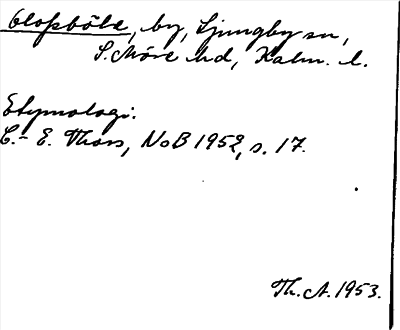 Glopböle, by, Ljungby sn,
S. Möre hd, Kalm. l.
Etymologi.
C.-E. Thors, NoB 1952, s. 17.
Th. A. 1953.